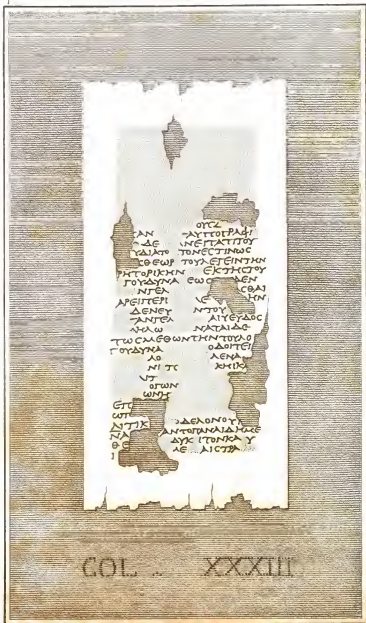 ΟΥϹΔ
ΑΝ ΑΥΤΟΓΡΑΦΙ
ΔΕ ΝΕΓΓΑΤΙΤΟΥ
ΥΔΙΑΤΟ ΤΟΝΕϹΤΙΝΩϹ
ϹΘΕΩΡ ΤΟΥΛΕΓΕΙΝΤΗΝ
ΡΗΤΟΡΙΚΗΝ ΕΚΤΗϹΤΟΥ
ΓΟΥΔΥΝΑ ΕΩϹ ΑΕΝ
ΝΓΕΛ ϹΘΑΙ
ΑΡΕΙΠΕΡΙ ΛΕ ΗΝ
ΔΕΝΕΥ ΝΤΟΥ
ΤΑΝΓΕΛ ΑΙΨΕΥΔΟϹ
ΗΛΛΩ ΝΑΤΑΙΔΕ
ΤΩϹΜΕΘΩΝΤΗΝΤΟΥΛΟ
ΓΟΥΔΥΝΑ ΟΔΟΙΤΕΙ
ΛΟ ΛΕΝΑ
ΝΙ ΤΙ ΚΗΙΚ
ΥΤ
ΟΓΩΝ
ΩΝΗ
ΕΠ
ΩΠ ΔΕΛΟΝΟΥΧ
ΛΙΤΙΚ ΑΝΤΟΠΑΝΑΙΔΗΜΕ
ΝΑ ΔΥΚ ΙΤΟΝΚΑ Υ
ΘΕ ΛΕ ΑΙϹΤΡΑ
Ι
COL. XXXIII